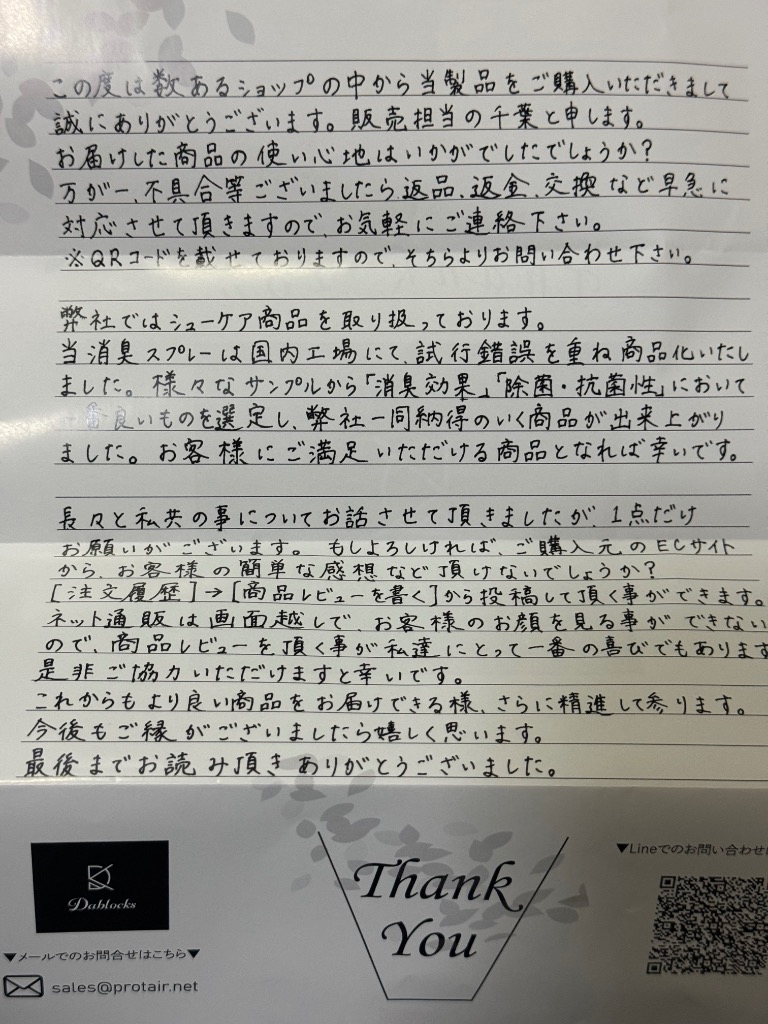 この度は数あるショップの中から当製品をご購入いただきまして
誠にありがとうございます。販売担当の千葉と申します。
お届けした商品の使い心地はいかがでしたでしょうか？
万が一、不具合等ございましたら返品、返金、交換など早急に
対応させて頂きますので、お気軽にご連絡下さい。
※QRコードを載せておりますので、そちらよりお問い合わせ下さい。
弊社ではシューケア商品を取り扱っております。
当消臭スプレーは国内工場にて、試行錯誤を重ね商品化いたし
ました。様々なサンプルから「消臭効果」「除菌・抗菌性」において
一番良いものを選定し、弊社一同納得のいく商品が出来上がり
ました。お客様にご満足いただける商品となれば幸いです。
長々と私共の事についてお話させて頂きましたが、1点だけ
お願いがございます。もしよろしければ、ご購入元のECサイト
から、お客様の簡単な感想など頂けないでしょうか？
[注文履歴]→[商品レビューを書く]から投稿して頂く事ができます。
ネット通販は画面越しで、お客様のお顔を見る事ができない
ので、商品レビューを頂く事が私達にとって一番の喜びでもあります
是非ご協力いただけますと幸いです。
これからもより良い商品をお届けできる様、さらに精進して参ります。
今後もご縁がございましたら嬉しく思います。
最後までお読み頂きありがとうございました。
DK
Dablocks
▼メールでのお問合せはこちら▼
sales@protair.net
Thank
You
▼Lineでのお問い合わせは